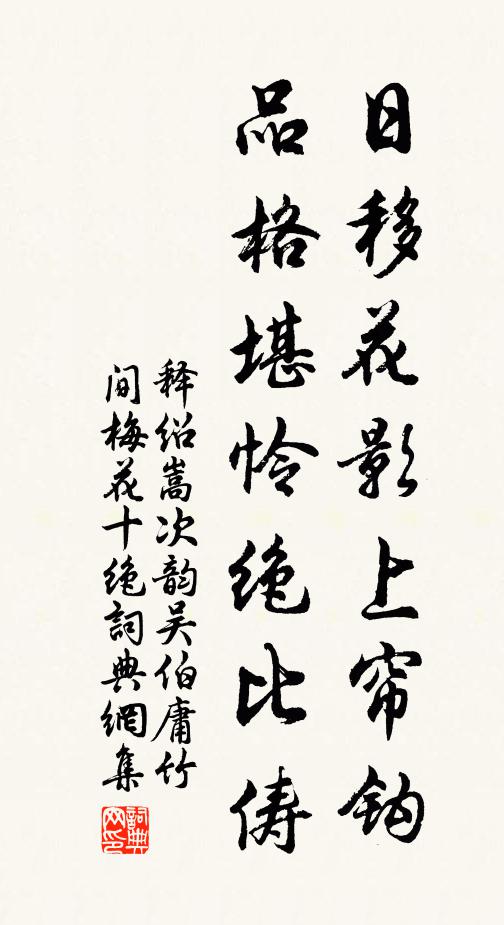 日移花影上帘钩
品格堪怜绝比俦
释绍嵩次韵吴伯庸竹
间梅花十绝詞典網集
詞典網印